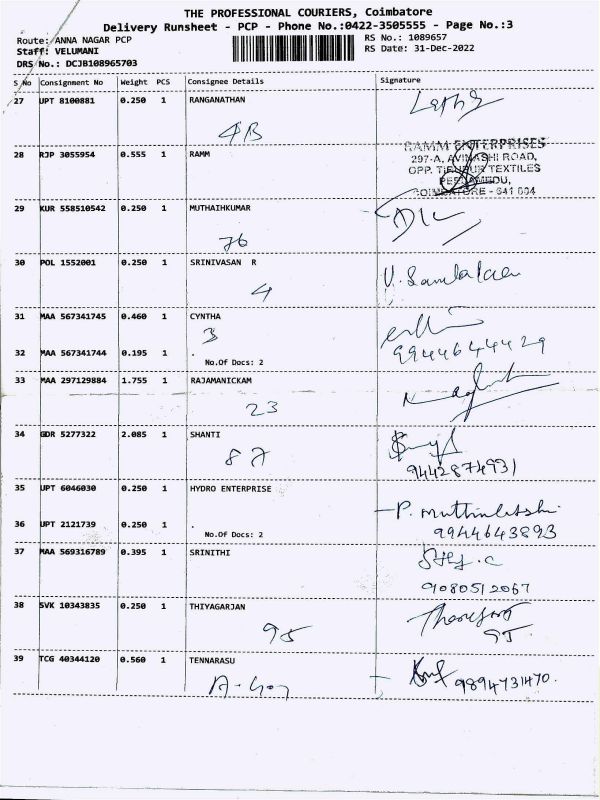 THE PROFESSIONAL COURIERS, Coimbatore
Delivery Runsheet - PCP - Phone No.:0422-3505555 - Page No.:3
Route: ANNA NAGAR PCP RS No.: 1089657
Staff: VELUMANI RS Date: 31-Dec-2022
DRS No.: DCJB108965703
S No Consignment No Weight PCS Consignee Details Signature
27 UPT 8100881 0.250 1 RANGANATHAN
4B
28 RJP 3055954 0.555 1 RAMM
RAMM ENTERPRISES
297-A, AVINASHI ROAD,
OPP. TIRUPUR TEXTILES
COIMBATORE - 641 004
29 KUR 558510542 0.250 1 MUTHAIHKUMAR
76
30 POL 1552001 0.250 1 SRINIVASAN R
4
31 MAA 567341745 0.460 1 CYNTHA
3
32 MAA 567341744 0.195 1 .
9944644429
No.Of Docs: 2
33 MAA 297129884 1.755 1 RAJAMANICKAM
23
34 GDR 5277322 2.085 1 SHANTI
87
9442874931
35 UPT 6046030 0.250 1 HYDRO ENTERPRISE
P. Muthulatshmi
36 UPT 2121739 0.250 1 .
No.Of Docs: 2 9944643893
37 MAA 569316789 0.395 1 SRINITHI
9080512067
38 SVK 10343835 0.250 1 THIYAGARJAN
95
39 TCG 40344120 0.560 1 TENNARASU
9894731470.